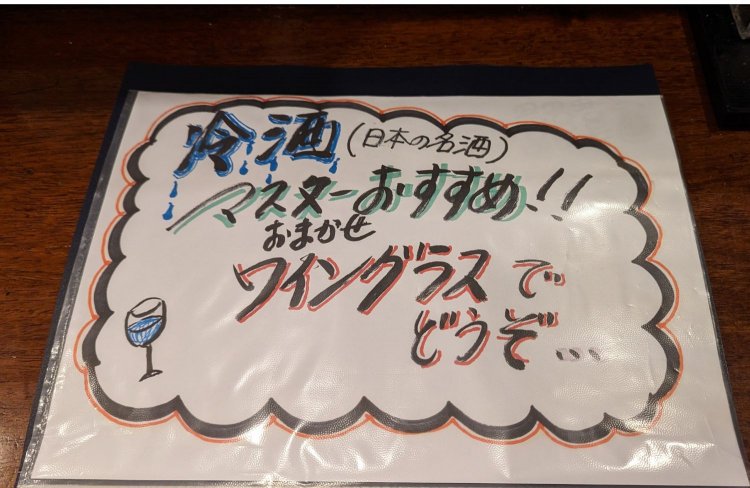 冷酒(日本の名酒)
マスターおすすめ!!
おまかせ
ワイングラスで
どうぞ…